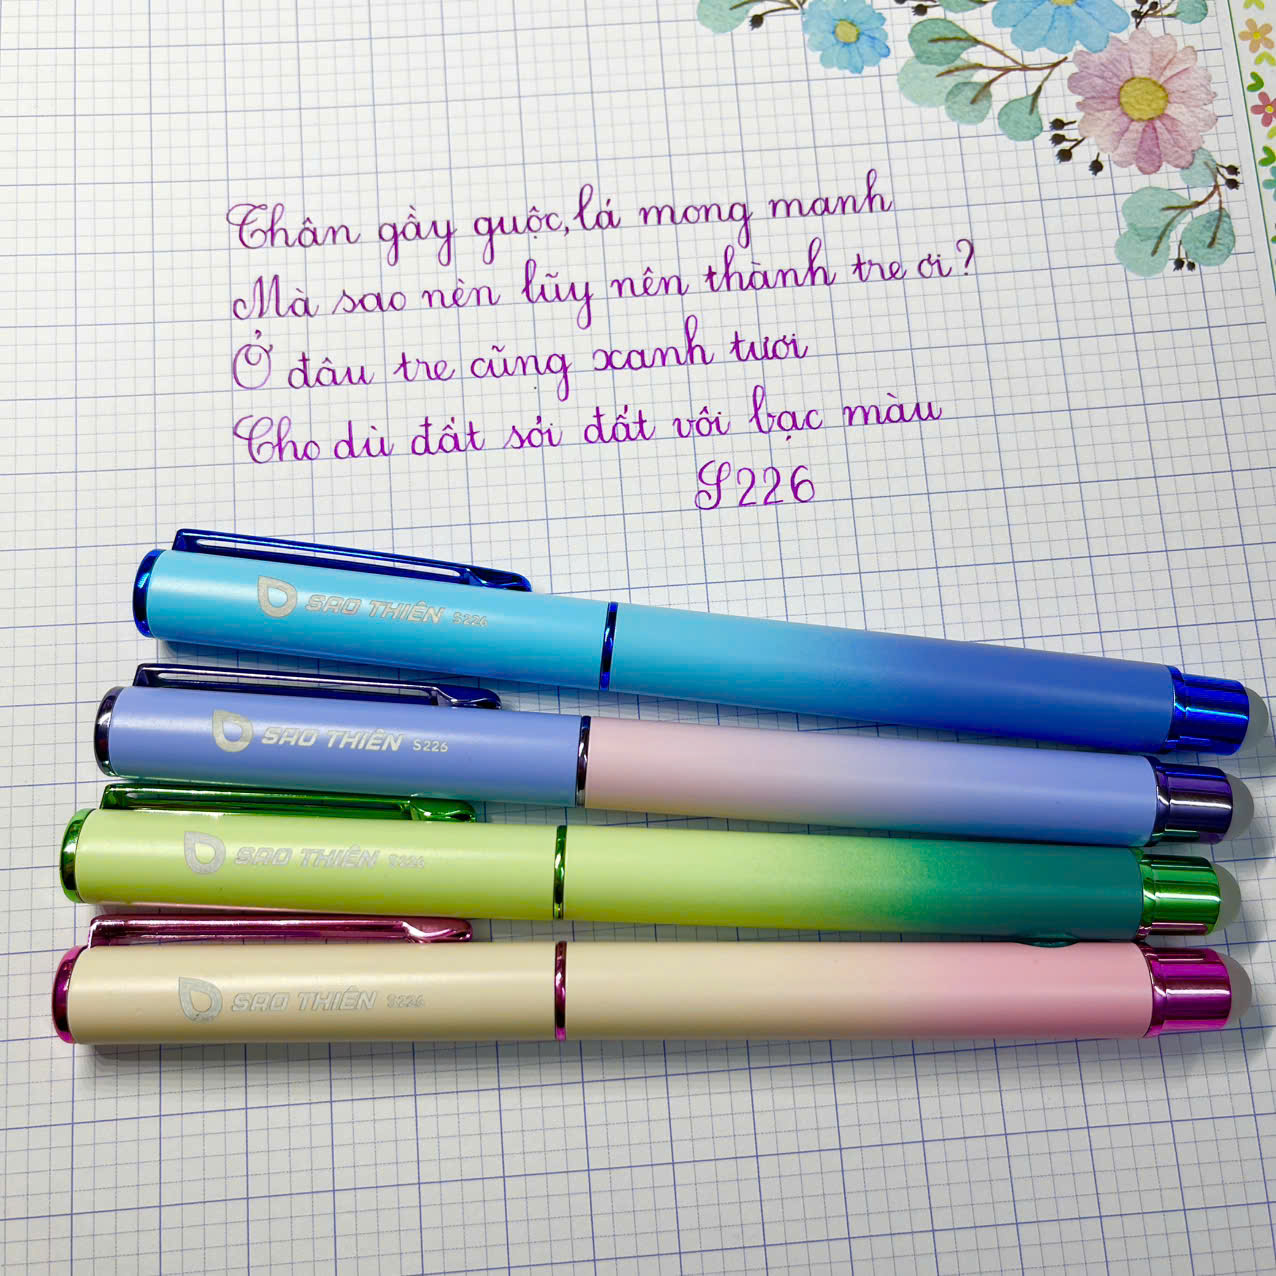 Thân gầy guộc, lá mong manh
Mà sao nên lũy nên thành tre ơi?
Ở đâu tre cũng xanh tươi
Cho dù đất sỏi đất vôi bạc màu
S226
SAO THIÊN S226
SAO THIÊN S226
SAO THIÊN S226
SAO THIÊN S226